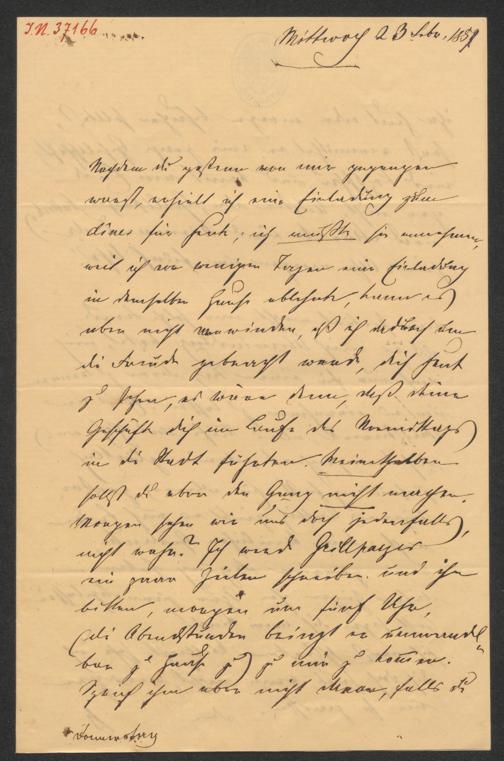 I.N. 37166
Mittwoch 23 Febr. 1859
Nachdem du gestern von mir gegangen
warst, erhielt ich eine Einladung zum
diner für heute; ich mußte sie annehmen,
weil ich vor wenigen Tagen eine Einladung
in demselben Hause ablehnte, kann es
aber nicht verwinden, daß ich dadurch um
die Freude gebracht werde, dich heut
zu sehen, es wäre denn, daß deine
Geschäfte dich im Laufe des Vormittags
in die Stadt führten. Meinethalben
sollst du aber den Gang nicht machen.
Morgen sehen wir uns doch jedenfalls,
nicht wahr? Ich werde Grillparzer
ein paar Zeilen schreiben und ihn
bitten, morgen um fünf Uhr,
(die Abendstunden bringt er
zu Hause zu) zu mir zu kommen.
Sprich ihm aber nicht davon, falls du
Donnerstag